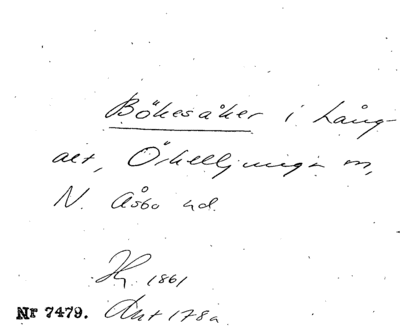 Bökesåker i Lång-
alt, Örkelljunga sn,
N. Åsbo hd.
Hg. 1861
Nr 7479. Akt 178a